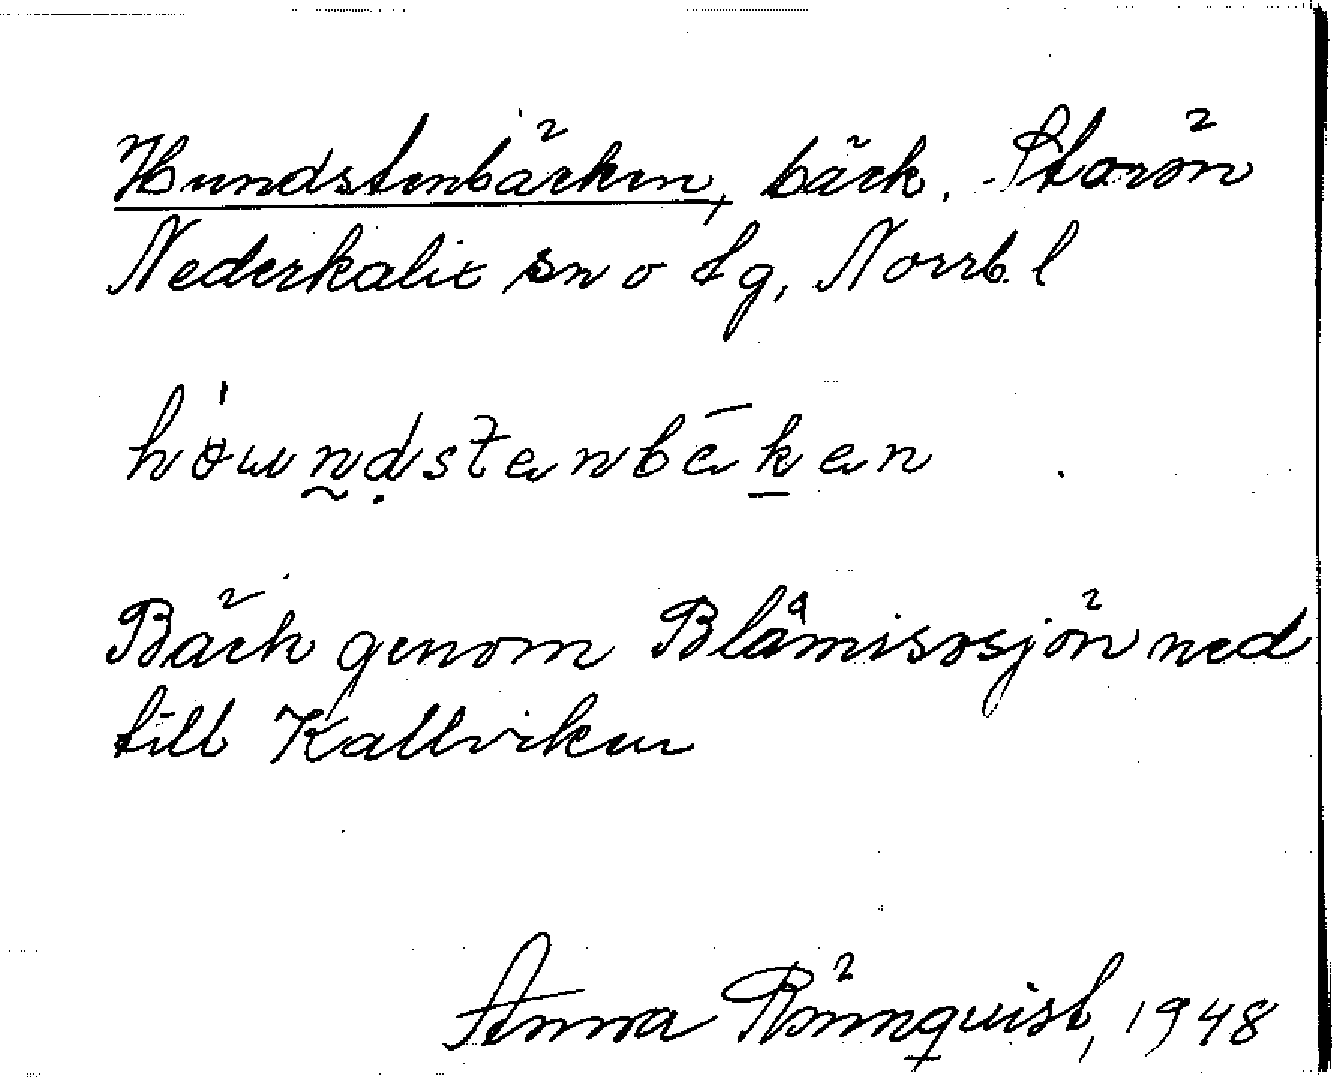 Hundstenbäcken, bäck. Storön
Nederkalix sn o tg, Norrb. l
Bäck genom Blåmisosjön ned
till Kallviken
Anna Rönnquist, 1948